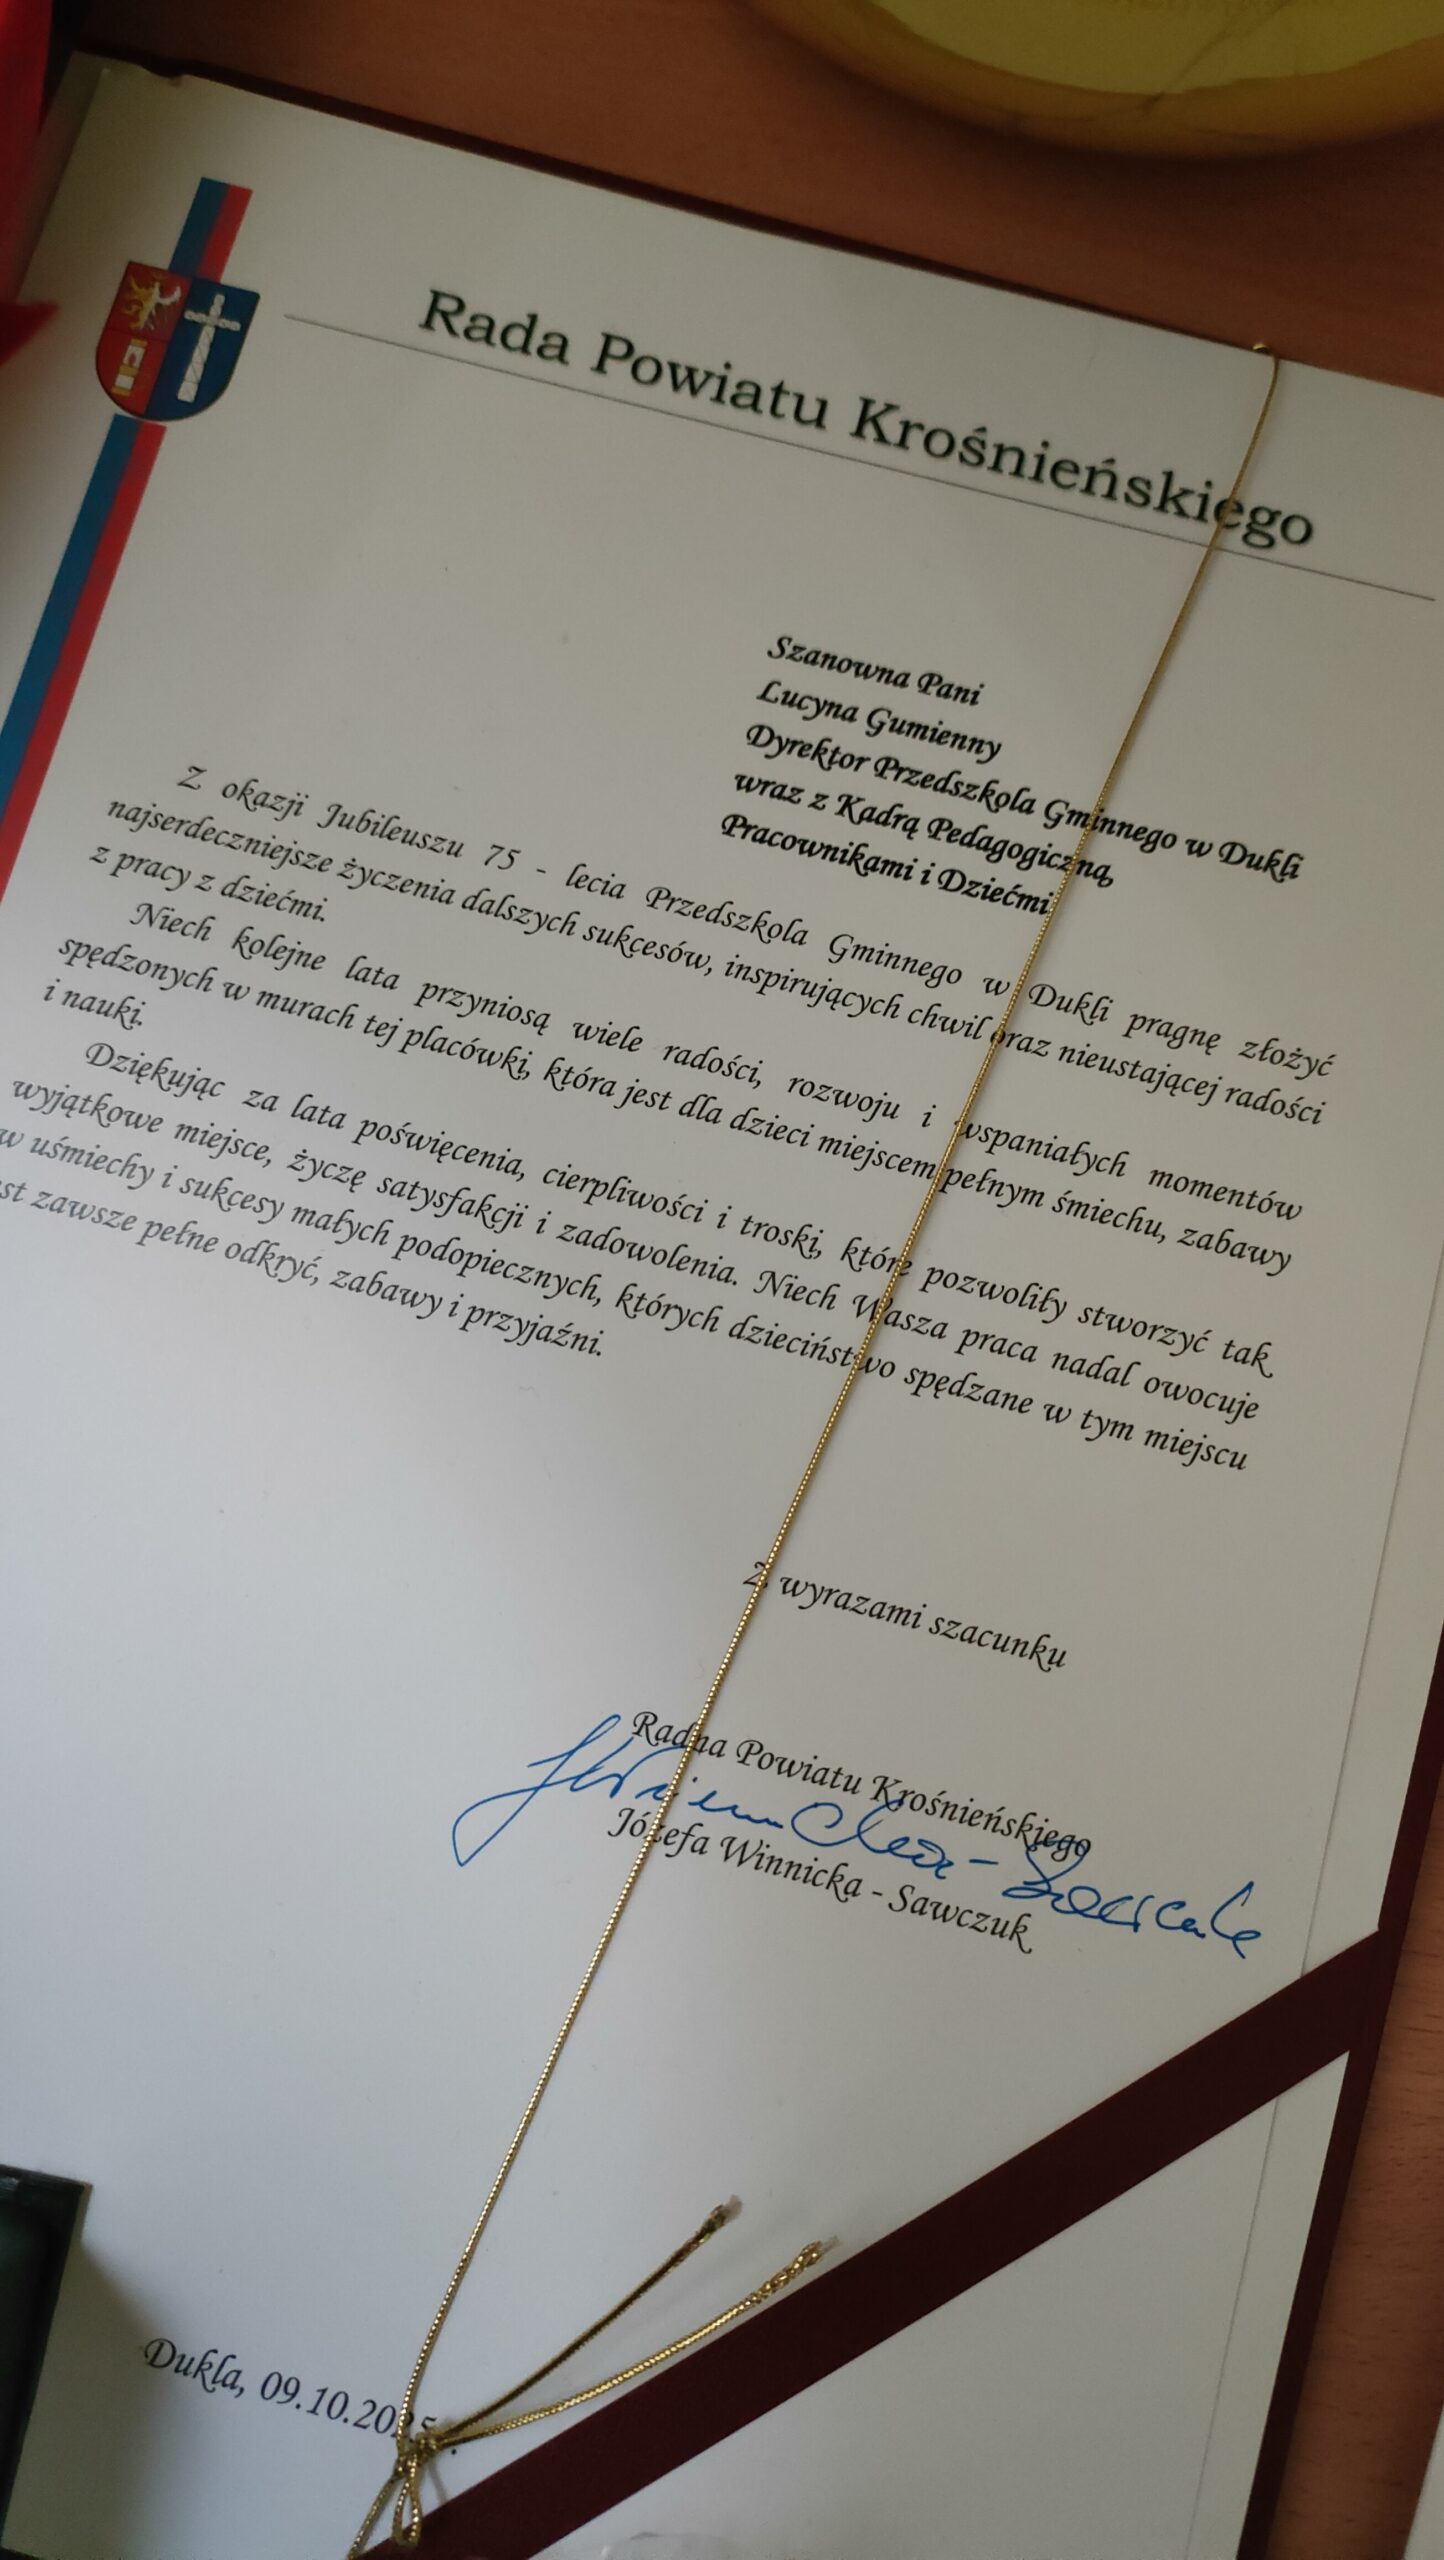 Rada Powiatu Krośnieńskiego
Szanowna Pani
Lucyna Gumienny
Dyrektor Przedszkola Gminnego w Dukli
wraz z Kadrą Pedagogiczną,
Pracownikami i Dziećmi
Z okazji Jubileuszu 75 - lecia Przedszkola Gminnego w Dukli pragnę złożyć
najserdeczniejsze życzenia dalszych sukcesów, inspirujących chwil oraz nieustającej radości
z pracy z dziećmi.
Niech kolejne lata przyniosą wiele radości, rozwoju i wspaniałych momentów
spędzonych w murach tej placówki, która jest dla dzieci miejscem pełnym śmiechu, zabawy
i nauki.
Dziękując za lata poświęcenia, cierpliwości i troski, które pozwoliły stworzyć tak
wyjątkowe miejsce, życzę satysfakcji i zadowolenia. Niech Wasza praca nadal owocuje
w uśmiechy i sukcesy małych podopiecznych, których dzieciństwo spędzane w tym miejscu
st zawsze pełne odkryć, zabawy i przyjaźni.
Z wyrazami szacunku
Radna Powiatu Krośnieńskiego
Józefa Winnicka - Sawczuk
Dukla, 09.10.2025